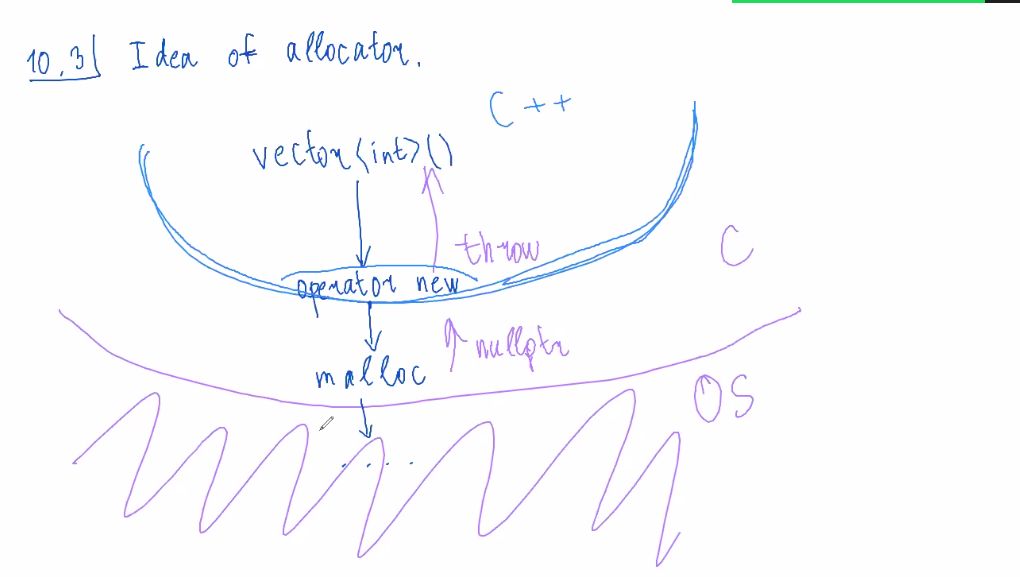 10.3 Idea of allocator.
C++
vector<int>()
throw
C
operator new
nullptr
malloc
OS
....